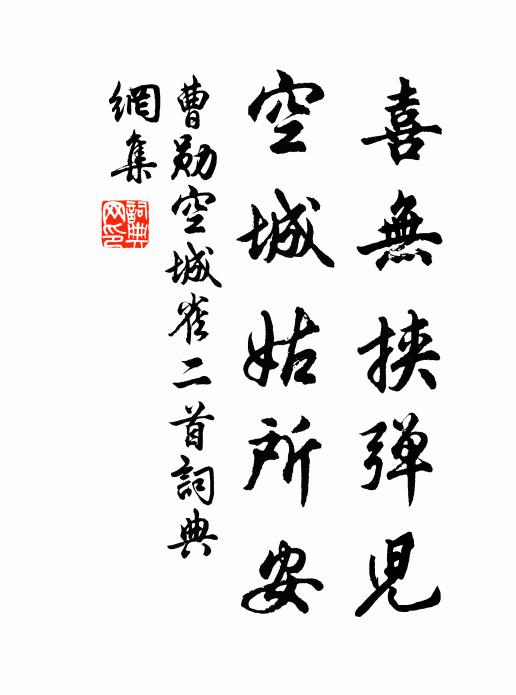 喜無挾弹児
空城姑所安
曹勛空城雀二首詞典
網集
詞典
网印